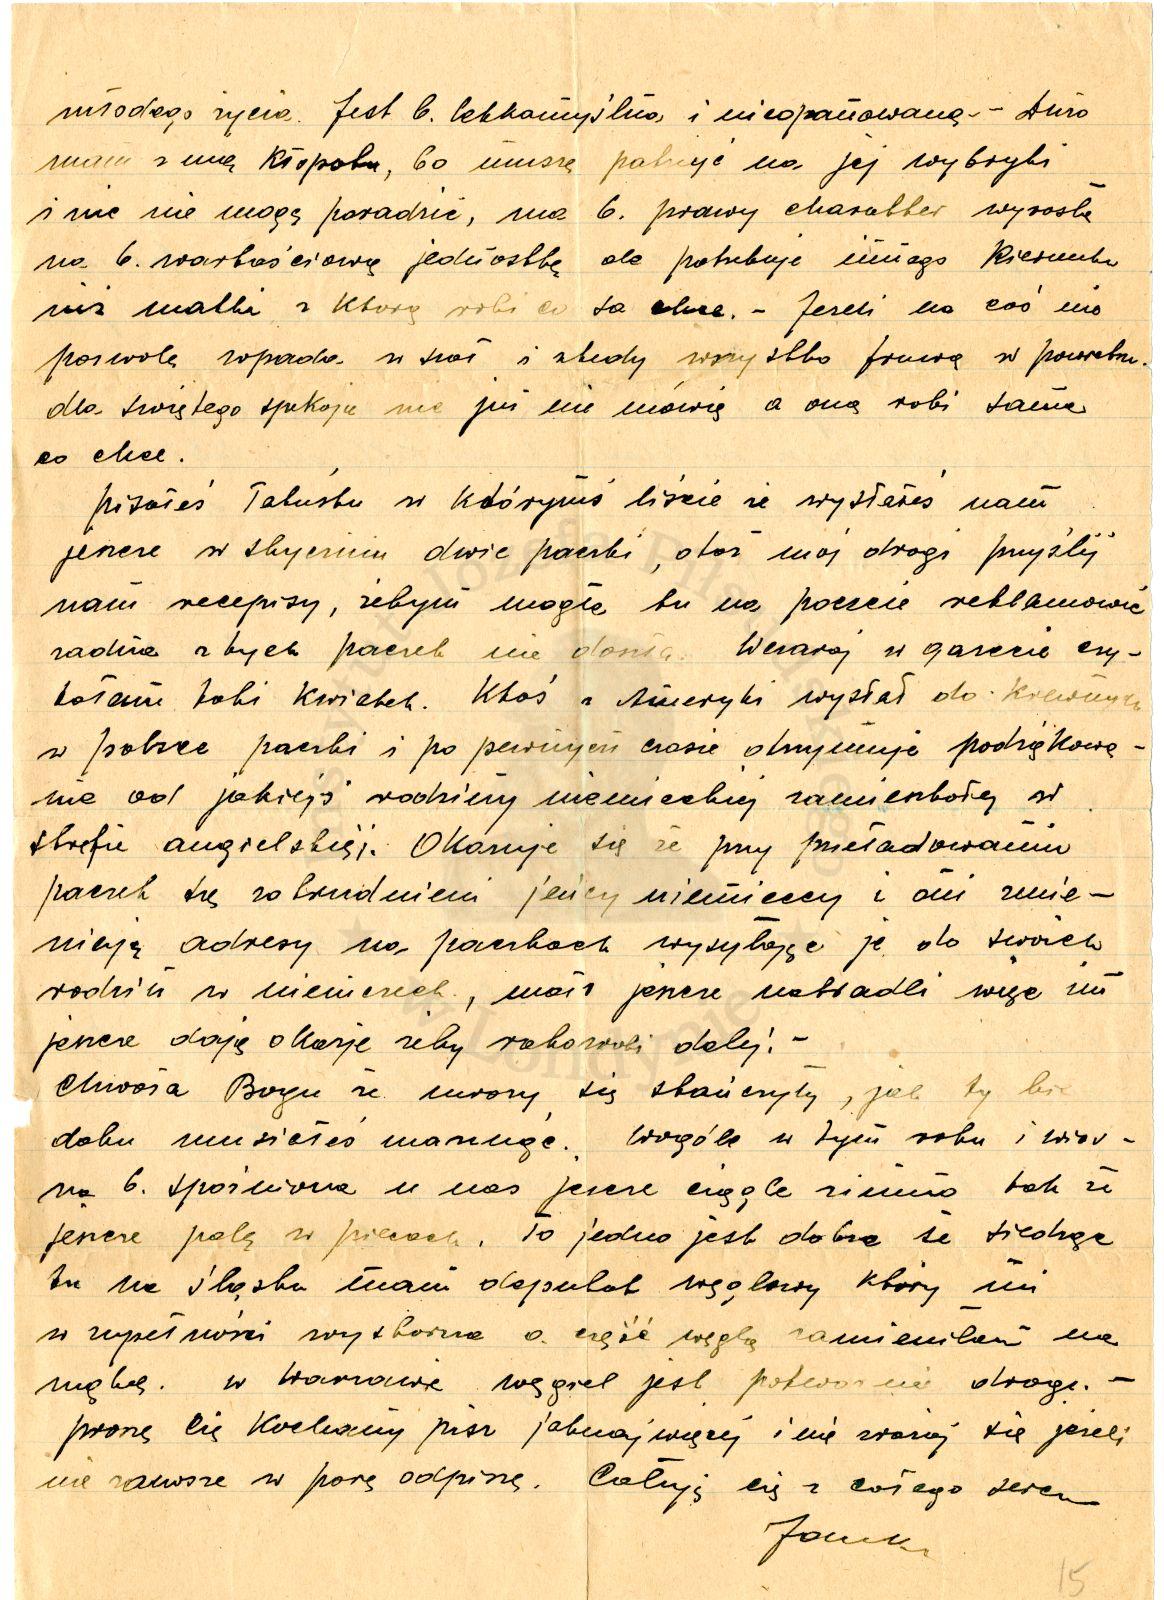 młodego życia. Jest b. lekkomyślna i nieopanowaną – Dużo
mam z nią kłopotu, bo muszę patrzyć na jej wybryki
i nic nie mogę poradzić, ma b. prawy charakter wyrosła
na b. wartościową jednostkę ale potrzebuje innego kierunku
niż matki z którą robi co sa chce. – Jeżeli na coś nie
pozwolę wpada w szał i wtedy wszystko fruwa w powietrzu.
dla świętego spokoju nic już nie mówię a ona robi sama
co chce.
pisałeś Tatuśku w którymś liście że wysłałeś nam
jeszcze w styczniu dwie paczki, otóż mój drogi przyślij
nam recepisy, żebym mogła tu na poczcie reklamować
żadna z tych paczek nie doszła. Wczoraj w gazecie czy-
tałam taki kwiatek. Ktoś z Ameryki wysłał do krewnych
w polsce paczki i po pewnym czasie otrzymuje podziękowa-
nie od jakiejś rodziny niemieckiej zamieszkałej w
strefie angielskiej. Okazuje się że przy przeładowaniu
paczek są zatrudnieni jeńcy niemieccy i oni zmie-
niają adresy na paczkach wysyłając je do swoich
rodzin w niemczech, mało jeszcze nakradli więc im
jeszcze dają okazje żeby rabowali dalej. –
Chwała Bogu że mrozy się skończyły, jak ty bie
daku musiałeś marznąć. Wogóle w tym roku i wios-
na b. spóźniona u nas jeszcze ciągle zimno tak że
jeszcze palę w piecach. To jedno jest dobre że siedząc
tu na śląsku mam deputat węglowy który mi
w zupełności wystarcza a część węgla zamieniłam na
mąkę. W Warszawie węgiel jest potwornie drogi. –
proszę Cię Kochany pisz jaknajwięcej i nie zważaj się jeżeli
nie zawsze w porę odpiszę. Całuję cię z całego serca
Janka
15